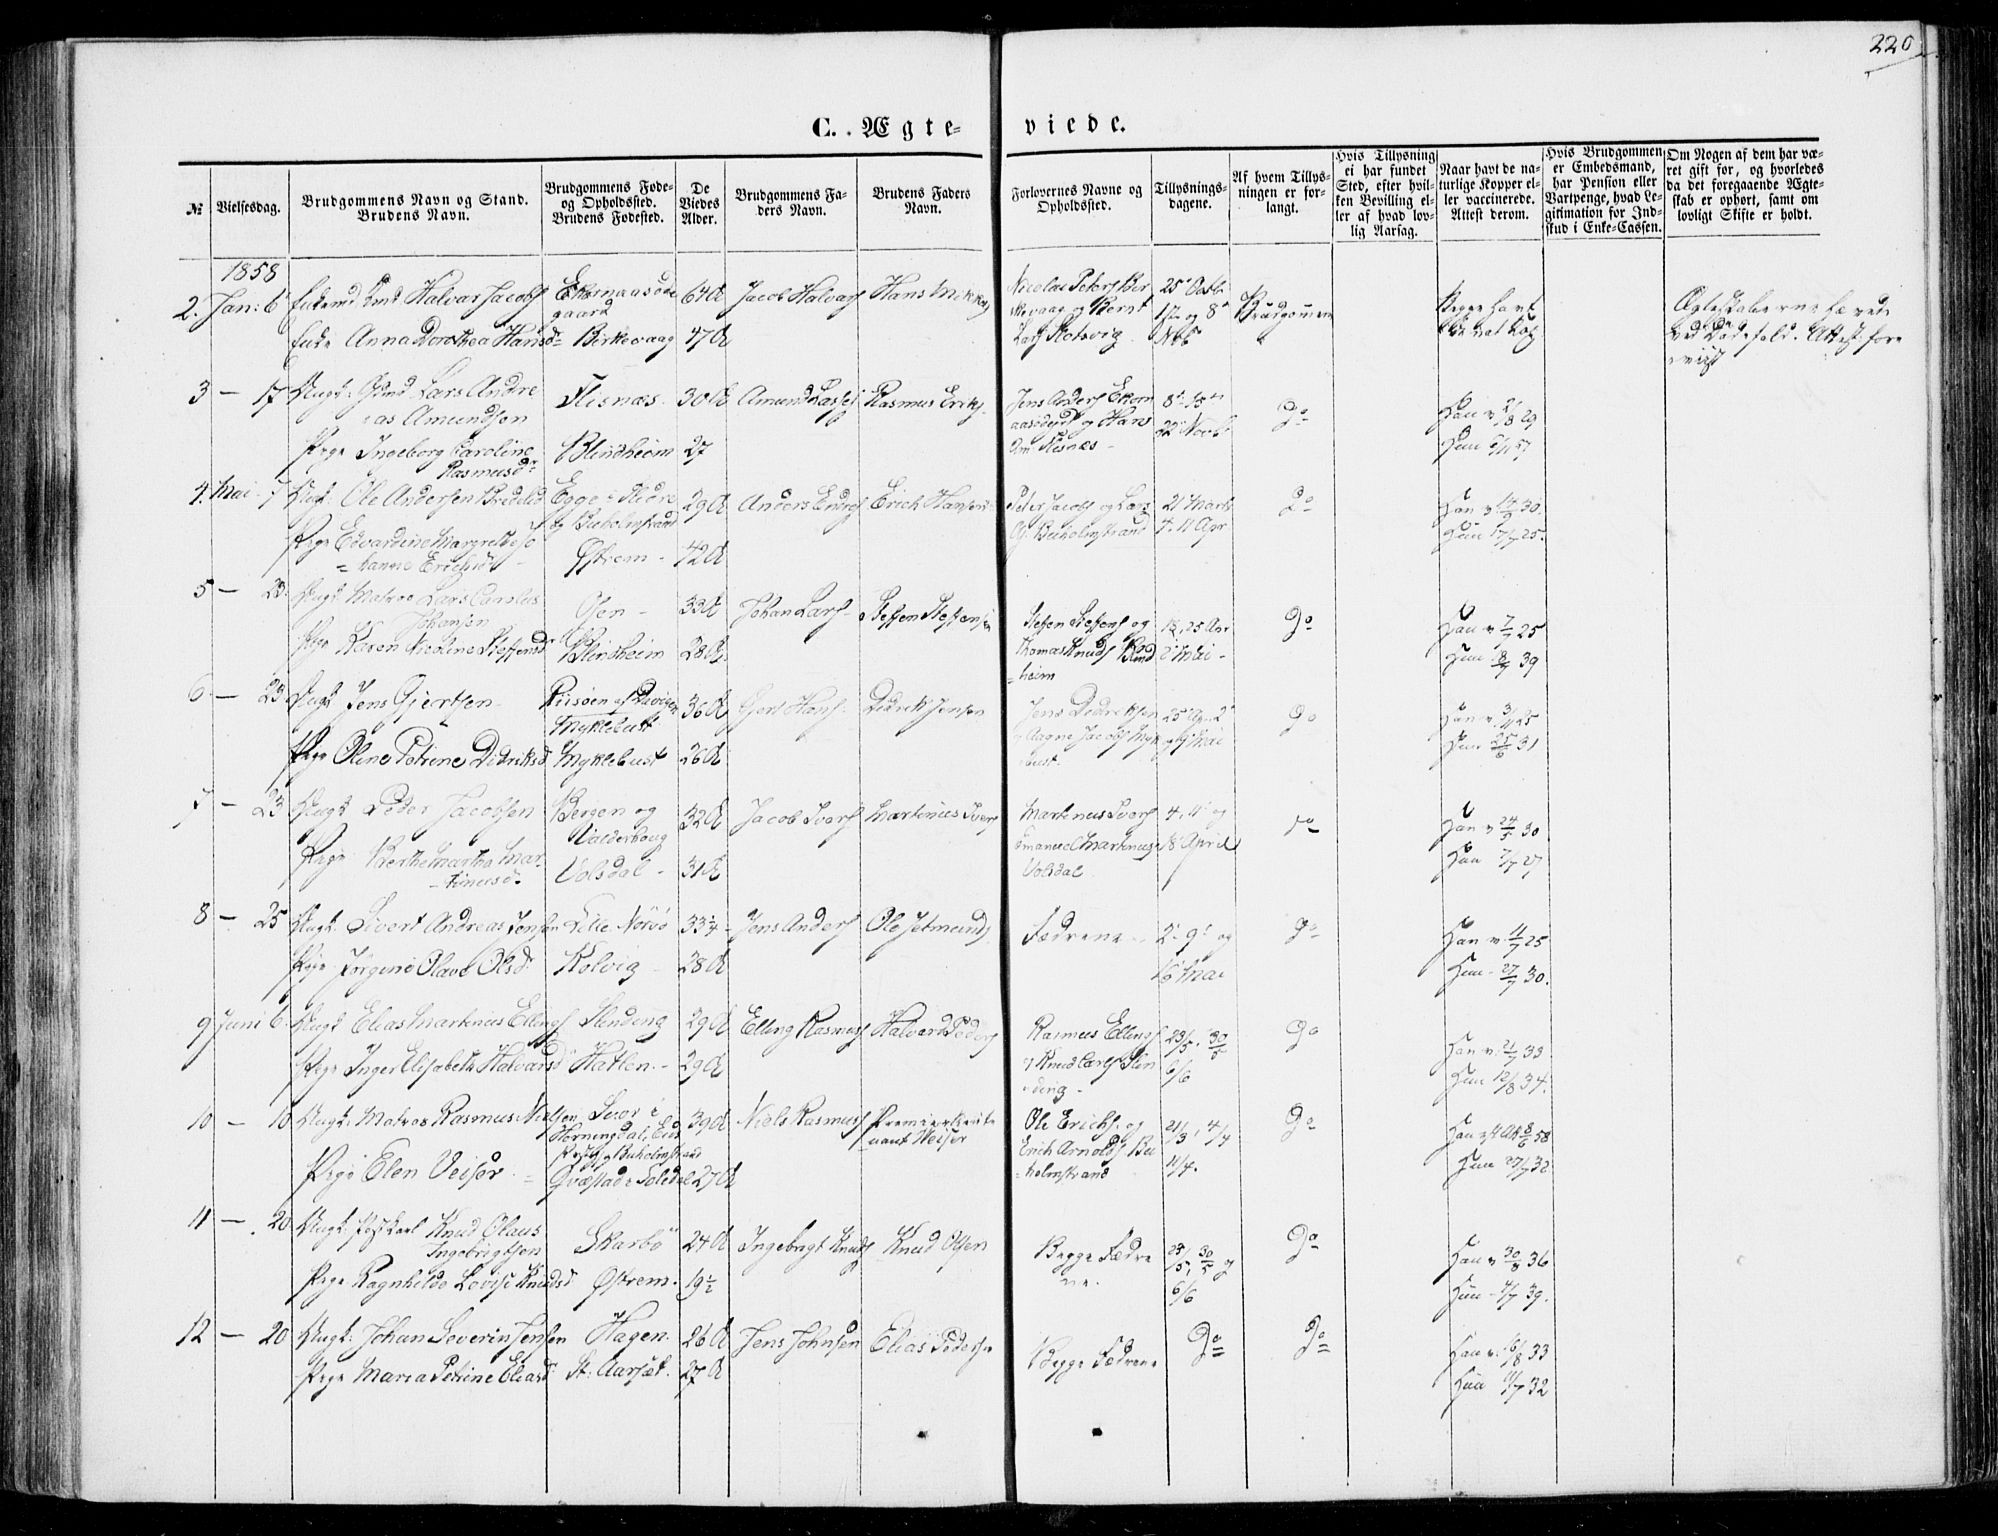 220
C. Ægteviede.
№
Vielsesdag.
Brudgommens Navn og Stand.
Brudens Navn.
Brudgommens Føde-
og Opholdssted.
Brudens Fødested.
De
Viedes
Alder.
Brudgommens Fa-
ders Navn.
Brudens Faders
Navn.
Forlovernes Navne og
Opholdssted.
Tillysnings-
dagene.
Af hvem Tillys-
ningen er for-
langt.
Hvis Tillysning
ei har fundet
Sted, efter hvil-
ken Bevilling el-
ler af hvad lov-
lig Aarsag.
Naar havt de na-
turlige Kopper el-
ler vaccinerede.
Attest derom.
Hvis Brudgommen
er Embedsmand,
har Pension eller
Vartpenge, hvad Le-
gitimation for Ind-
skud i Enke-Cassen.
Om Nogen af dem har væ-
ret gift før, og hvorledes
da det foregaaende Ægte-
skab er ophørt, samt om
lovligt Skifte er holdt.
1858
2. Jan: 6 Enkemd Halvar Jacobs
Enke Anna Dorothea Hansd
gaard
Birkevaag
64 A
47 A
Jacob Halvars
Hans
Nicolai Peters Bir
kevaag og Bernt
Lars Kolvig
25 Octb
1ste og 8
Nvb
Brudgommen
Begge havt
nat Kop
Ægteskaberne hævede
ved Dødsfald. Attest fore
vist
3 — 17 Ungk: Gmd Lars Andre
as Amundsen
Pige Ingeborg Caroline
Rasmusd
Flisnæs
Blindheim
30 A
27
Amund Lasses
Rasmus Eriks
Jens Anders Ekorn
aas og Hans
Flisnæs
8 15
22 Novb
Do
Han v /8 29
Hun
4. Mai 7 Ungk: Ole Andersen Bredelid
Pige Edvardine Margrethe Jo
hanne Erichsd
Egge i Slidre
og Buholmstrand
Østrem
29 A
42 A
Anders Endres
Erich Hansen
Peter Jacobs og Lars
Buholmstrand
21 Marts
4 11 Apr
Do
Han v 14/9 30.
Hun 17/7 25.
5 — 23. Ungk: Matros Lars Carolus
Johansen
Pige Karen Nicoline Steffensd
Osen
Blindheim
33 A
28 A
Johan Lars
Steffen Steffensen
Steffen Steffens og
Thomas Knuds Blind
heim
18, 25 Apr
2 Mai
Do
Han v 7/7 25
Hun 18/7 39
6 — 23 Ungk Jens Gjertsen
Pige Oline Petrine Didriksd
Riisøen af Davigen
Myklebust
Myklebust
36 A
26 A
Gjert Hans
Didrik Jensen
Jens Didriksen
Aagne Jacobs Myk
bust.
25 Ap. 2
og 9 Mai
Do
Han v. 3/11 25
Hun 25/6 31
7 — 23 Ungk Peder Jacobsen
Pige Berthe Martha Mar
tinusd
Bergen og
Valderhoug
Volsdal
32 A
31 A
Jacob Ivers
Martinus Ivers
Martinus Ivers
Emanuel Martinus
Volsdal
4, 11 og
18 April
Do
Han v 24/5 30
Hun 7/7 27
8 — 25 Ungk. Sivert Andreas Jensen
Pige Jørgine Olave Olsd
Lille Nørvø
Kolvig
33 1/4
28 A
Jens Anders
Ole Jetmunds
Fædrene
2 9 og
16 Mai
Do
Han v 11/7 25
Hun 27/7 30.
9 Juni 6 Ungk Elias Martinus Ellings
Pige Inger Elisabeth Halvarsd
Slinding
Hatlen
29 A
29 A
Elling Rasmus
Halvard Peders
Rasmus Ellings
Knud Carls Slin
ding
23/5, 30/5
6/6
Do
Han v. 21/7 33
Hun 12/8 34.
10 — 10 Ungk. Matros Rasmus Nielsen
Pige Elen Veiser
Svor i
Horningdal, Eids
Præstg Buholmstrand
27 A
39 A
Niels Rasmus
Premierlieute
nant Weiser
Ole Erichs og
Erich Arnolds Bu
holmstrand
21/3, 4/4
11/4.
Do
Han 8/6 58
Hun 27/7 32
11 — 20 Ungk. Knud Olaus
Ingebrigtsen
Pige Ragnhilde Lovise Knudsd
Skarbø
Østrem
24 A
19 1/2
Ingebrigt Knuds
Knud Olsen
Begge Fædre
ne.
23/5, 30/5 og
6/6
Do
Han v 30/8 36
Hun 4/7 39.
12 — 20 Ungk: Johan Severin Jensen
Pige Maria Petrine Eliasd
Hagen
St: Aarsæt.
26 A
27 A
Jens Johnsen
Elias Pedersen
Begge Fædrene
Do
Do
Han v. 16/8 33
Hun /7 32